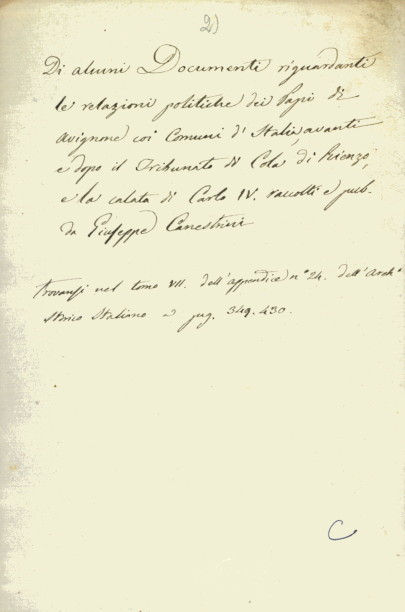 2)
Di alcuni Documenti riguardanti
le relazioni politiche dei Papi di
Avignone coi Comuni d'Italia, avanti
e dopo il Tribunato di Cola di Rienzo,
e la calata di Carlo IV. raccolti e pub.
da Giuseppe Canestrini
Trovansi nel tomo VII. dell'appendice n° 24. dell'Arch°
Storico Italiano a pag. 349-430.
C